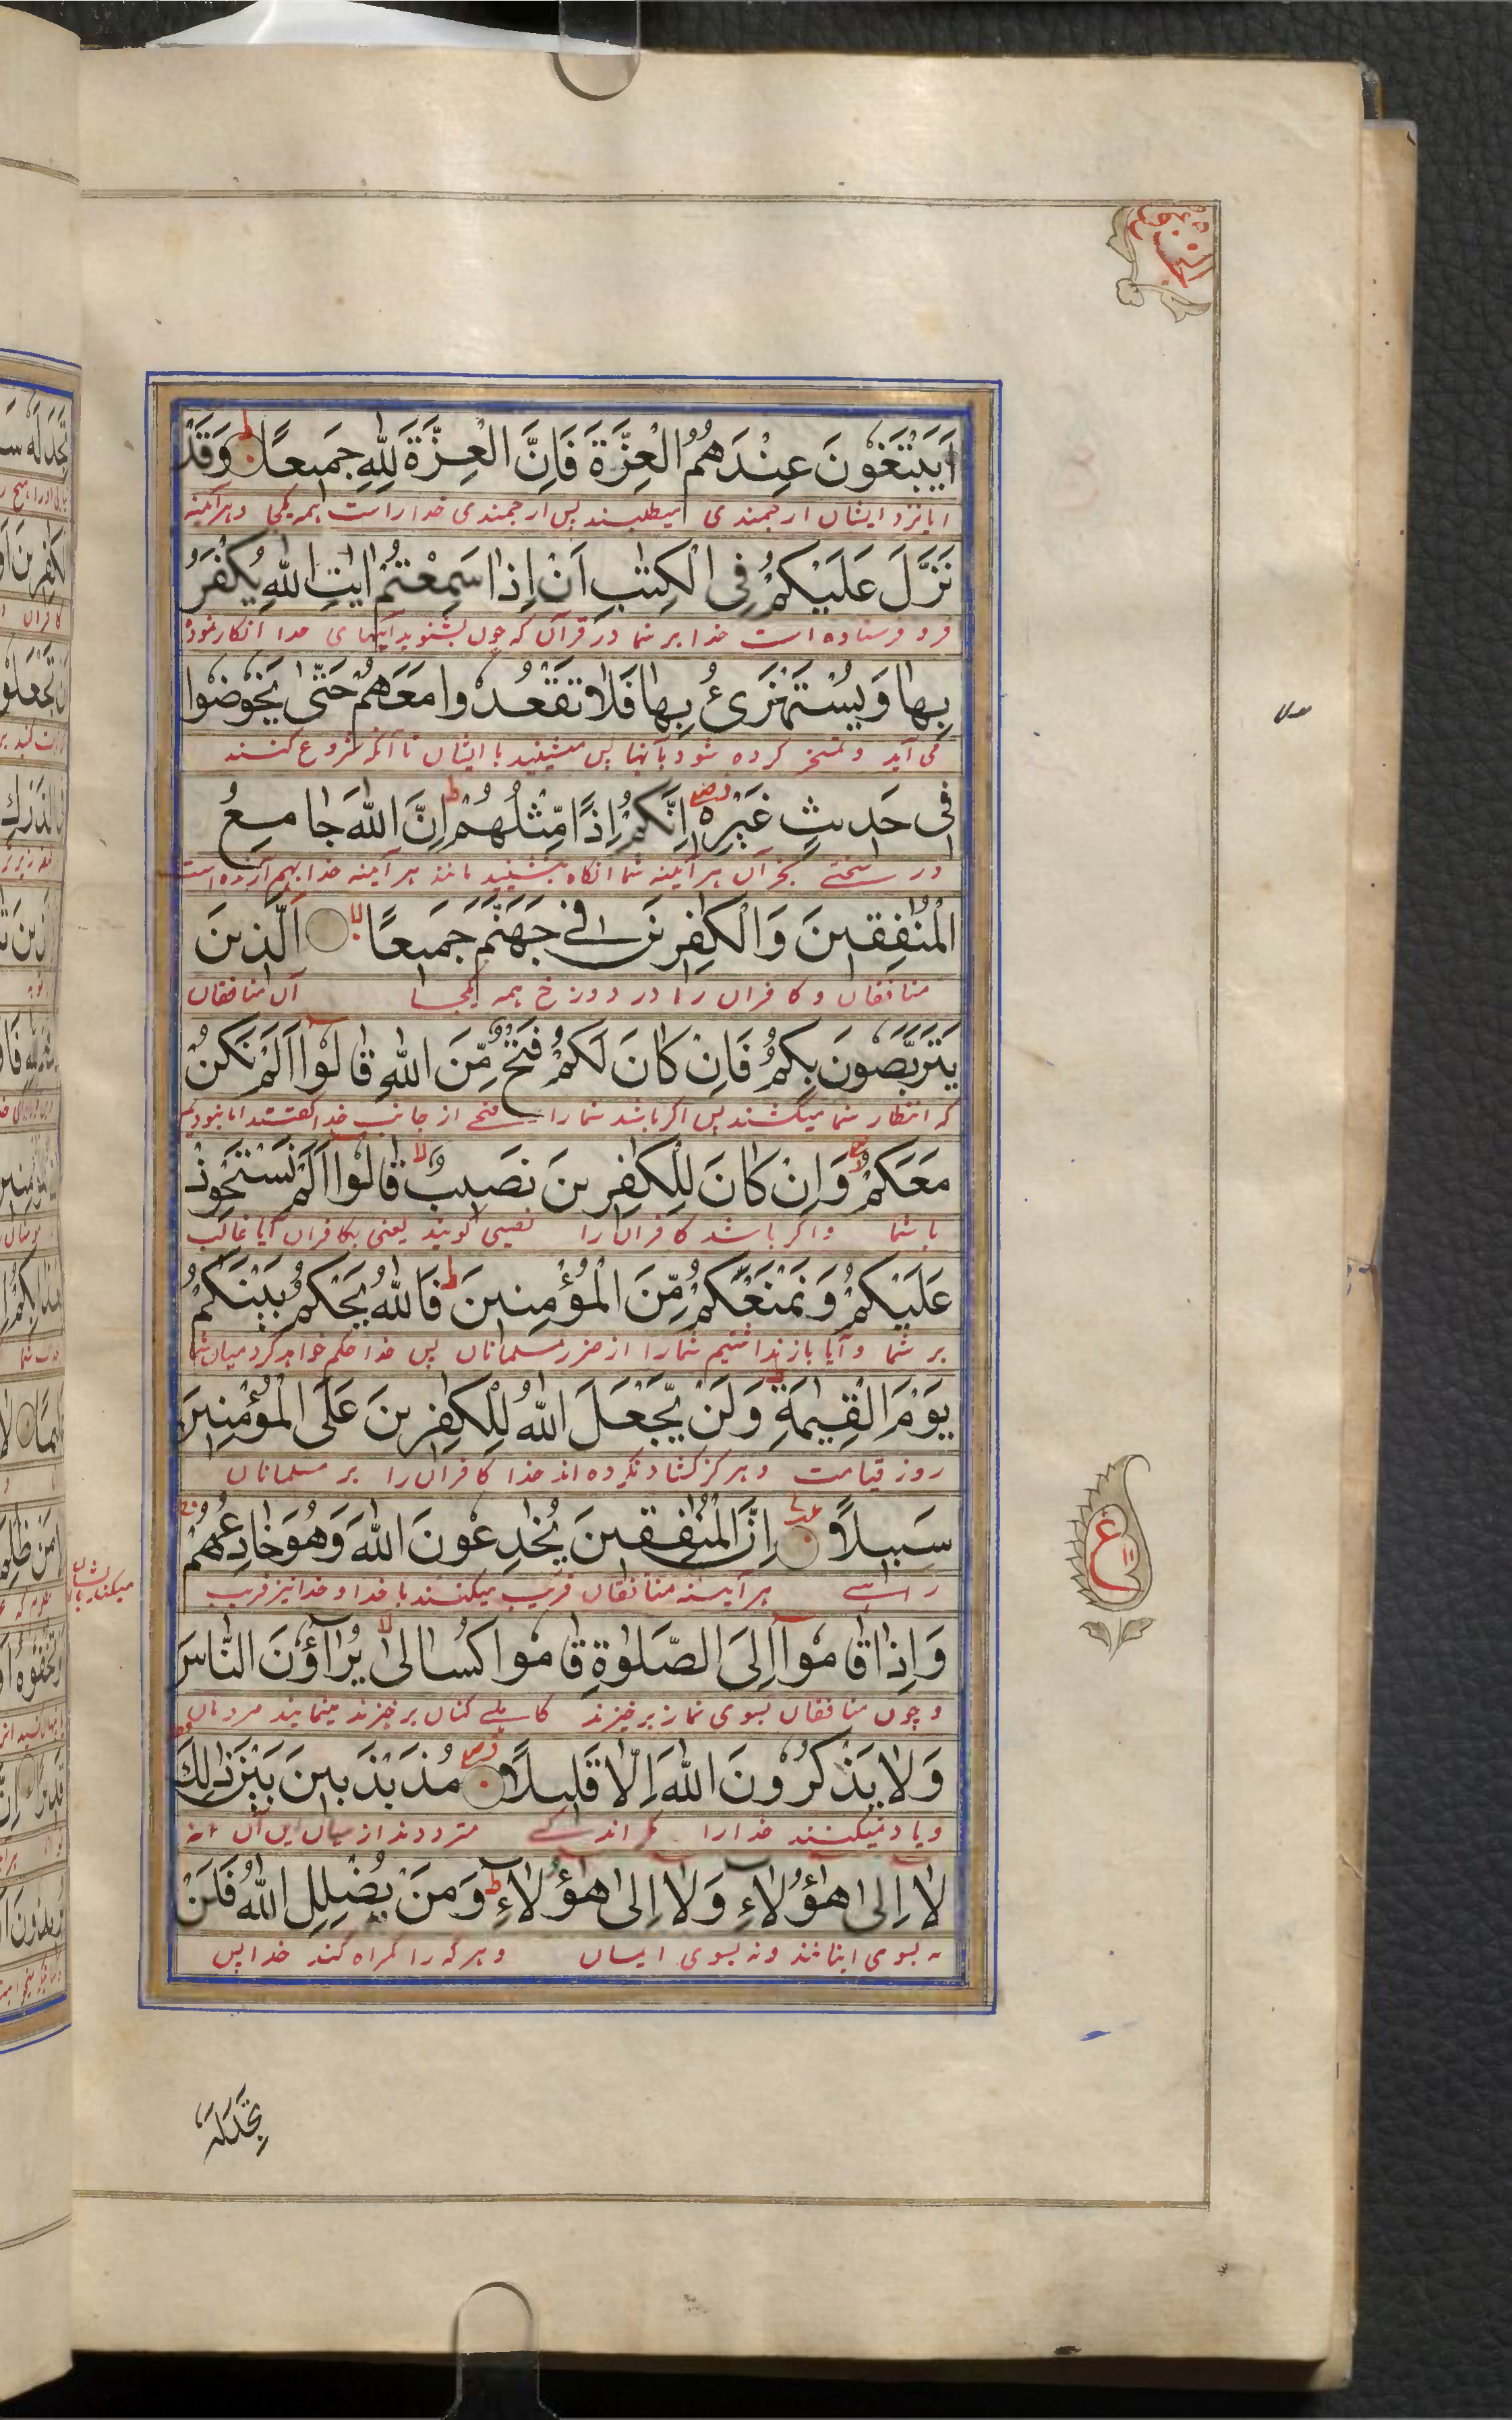 اَيَبْتَغُونَ عِنْدَهُمُ الْعِزَّةَ فَاِنَّ الْعِزَّةَ لِلّٰهِ جَمِيعًا ط وَقَدْ
ایا نزد ایشان ارجمندی میطلبند پس ارجمندی خدا راست همه یکجا و هر آئینه
نَزَّلَ عَلَيْكُمْ فِى الْكِتٰبِ اَنْ اِذَا سَمِعْتُمْ اٰيٰتِ اللّٰهِ يُكْفَرُ
فرو فرستاده است خدا بر شما در قرآن که چون بشنوید آیتهای خدا انکار نموده
بِهَا وَيُسْتَهْزَئُ بِهَا فَلَا تَقْعُدُوا مَعَهُمْ حَتّٰى يَخُوضُوا
می آید و تمسخر کرده شود بآنها پس منشینید با ایشان تا آنکه شروع کنند
فِى حَدِيثٍ غَيْرِهٖ اِنَّكُمْ اِذًا مِّثْلُهُمْ ط اِنَّ اللّٰهَ جَامِعُ
در سخنے بجز آن هر آئینه شما انگاه مانند هر آئینه خدا بهم آرنده است
الْمُنٰفِقِينَ وَالْكٰفِرِينَ فِى جَهَنَّمَ جَمِيعًا لا الَّذِينَ
منافقان و کافران را در دوزخ همه یکجا آن منافقان
يَتَرَبَّصُونَ بِكُمْ فَاِنْ كَانَ لَكُمْ فَتْحٌ مِّنَ اللّٰهِ قَالُوا اَلَمْ نَكُنْ
که انتظار شما میکشند پس اگر باشد شما را فتحے از جانب خدا گفتند ایا نبودیم
مَعَكُمْ وَاِنْ كَانَ لِلْكٰفِرِينَ نَصِيبٌ لا قَالُوا اَلَمْ نَسْتَحْوِذْ
با شما و اگر باشد کافران را نصیبی گویند یعنی بکافران آیا غالب
عَلَيْكُمْ وَنَمْنَعْكُمْ مِّنَ الْمُؤْمِنِينَ ط فَاللّٰهُ يَحْكُمُ بَيْنَكُمْ
بر شما و آیا باز نداشتیم شما را از ضرر مسلمانان پس خدا حکم خواهد کرد میان شما
يَوْمَ الْقِيٰمَةِ ط وَلَنْ يَّجْعَلَ اللّٰهُ لِلْكٰفِرِينَ عَلَى الْمُؤْمِنِينَ
روز قیامت و هرگز کشاد نکرده اند خدا کافران را بر مسلمانان
سَبِيلًا اِنَّ الْمُنٰفِقِينَ يُخٰدِعُونَ اللّٰهَ وَهُوَ خَادِعُهُمْ
راہے هر آینه منافقان فریب میکنند با خدا و خدا نیز فریب
وَاِذَا قَامُوا اِلَى الصَّلٰوةِ قَامُوا كُسَالٰى لا يُرَاؤُنَ النَّاسَ
و چون منافقان بسوی نماز برخیزند کاہلے کنان برخیزند مینمایند مردمان
وَلَا يَذْكُرُونَ اللّٰهَ اِلَّا قَلِيلًا مُذَبْذَبِينَ بَيْنَ ذٰلِكَ
و یاد نمیکنند خدا را مگر اندکے مترددند از میان این آن
لَا اِلٰى هٰؤُلَاءِ وَلَا اِلٰى هٰؤُلَاءِ ط وَمَنْ يُضْلِلِ اللّٰهُ فَلَنْ
نه بسوی اینانند و نه بسوی ایشان و هر که را گمراه کند خدا پس
تَجِدَ لَهُ
ع
١١